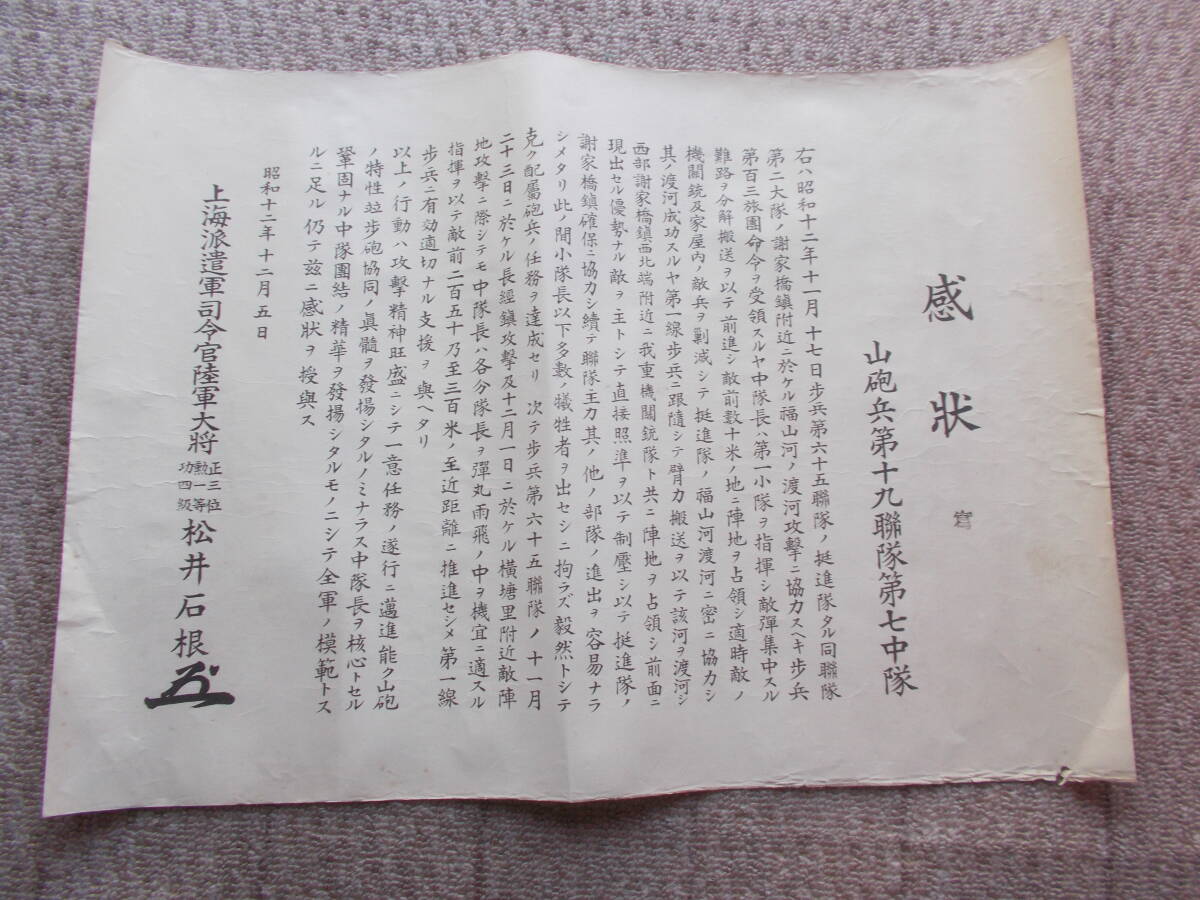 感状
寫
山砲兵第十九聯隊第七中隊
右ハ昭和十二年十一月十七日步兵第六十五聯隊ノ挺進隊タル同聯隊
第二大隊ノ謝家橋鎮附近ニ於ケル福山河ノ渡河攻擊ニ協力スヘキ步兵
第百三旅團命令ヲ受領スルヤ中隊長ハ第一小隊ヲ指揮シ敵彈集中スル
難路ヲ分解搬送ヲ以テ前進シ敵前數十米ノ地ニ陣地ヲ占領シ適時敵ノ
機關銃及家屋內ノ敵兵ヲ剿滅シテ挺進隊ノ福山河渡河ニ密ニ協力シ
其ノ渡河成功スルヤ第一線步兵ニ跟隨シテ臂力搬送ヲ以テ該河ヲ渡河シ
西部謝家橋鎮西北端附近ニ我重機關銃隊ト共ニ陣地ヲ占領シ前面ニ
現出セル優勢ナル敵ヲ主トシテ直接照準ヲ以テ制壓シ以テ挺進隊ノ
謝家橋鎮確保ニ協力シ續テ聯隊主力其ノ他ノ部隊ノ進出ヲ容易ナラ
シメタリ此ノ間小隊長以下多數ノ犧牲者ヲ出セシニ拘ラズ毅然トシテ
克ク配屬砲兵ノ任務ヲ達成セリ 次テ步兵第六十五聯隊ノ十一月
二十三日ニ於ケル長經鎮攻擊及十二月一日ニ於ケル橫塘里附近敵陣
地攻擊ニ際シテモ中隊長ハ各分隊長ヲ彈丸雨飛ノ中ヲ機宜ニ適スル
指揮ヲ以テ敵前二百五十乃至三百米ノ至近距離ニ推進セシメ第一線
步兵ニ有効適切ナル支援ヲ與ヘタリ
以上ノ行動ハ攻擊精神旺盛ニシテ一意任務ノ遂行ニ邁進能ク山砲
ノ特性竝步砲協同ノ眞髓ヲ發揚シタルノミナラス中隊長ヲ核心トセル
鞏固ナル中隊團結ノ精華ヲ發揚シタルモノニシテ全軍ノ模範トス
ルニ足ル仍テ茲ニ感狀ヲ授與ス
昭和十二年十二月五日
上海派遣軍司令官陸軍大將 正三位勲一等功四級 松井石根